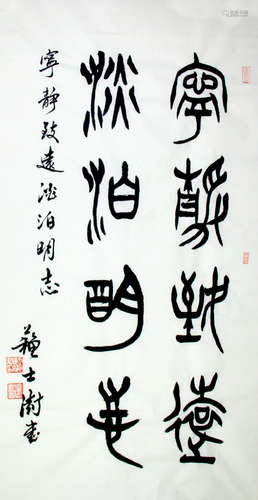 寧靜致遠
淡泊明志
寧靜致遠淡泊明志
蘇士澍書